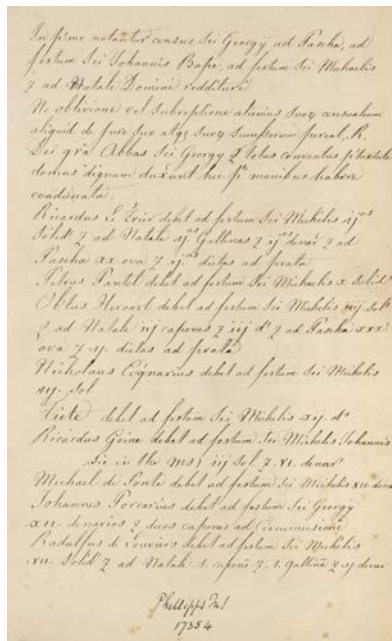 In p'imo notantur census Sci Georgij ad Pascha, ad
festum Sci Johannis Bapẽ, ad festum Sci Michaelis
⁊ ad Natale Domini redditure
Ne oblivione vel subreptione alicuius suoꝝ censualium
aliquid de jure suo atqꝫ suoꝝ pereat, R.
Dei gr̃a Abbas Sci Georgij ⁊ totus conventus
domus dignum duxunt hec manibus habere
Ricardus Le debet ad festum Sci Michãlis ij.
solid' ⁊ ad Natale ij. Gallinas ⁊ ij. denar' ⁊ ad
Pascha xx ova ⁊ ij. dietas ad prata
Petrus Pantol debet ad festum Sci Michaelis x solid'
Obtus Heroart debet ad festum Sci Michãlis iiij sol
⁊ ad Natale iij capones ⁊ iij d' ⁊ ad Pascha xxx
ova ⁊ ij. dietas ad prata
Nicholaus debet ad festum Sci Michãlis
sol
debet ad festum Sci Michãlis xij. d'
Ricardus Goine debet ad festum Sci Michãlis Johannis
sic in the MS) iij sol. ⁊ vi. denar
Michael de Ponte debet ad festum Sci Michãlis xii denar
Johannes Porcarius debet ad festum Sci Georgij
xii. denarios ⁊ duos capones ad Circumcisionẽ
Radulfus de Louviers debet ad festum Sci Michãlis
vii. solid' ⁊ ad Natale. 1. caponẽ ⁊ .1. gallinã ⁊ ij denar
Phillipps MS
17354